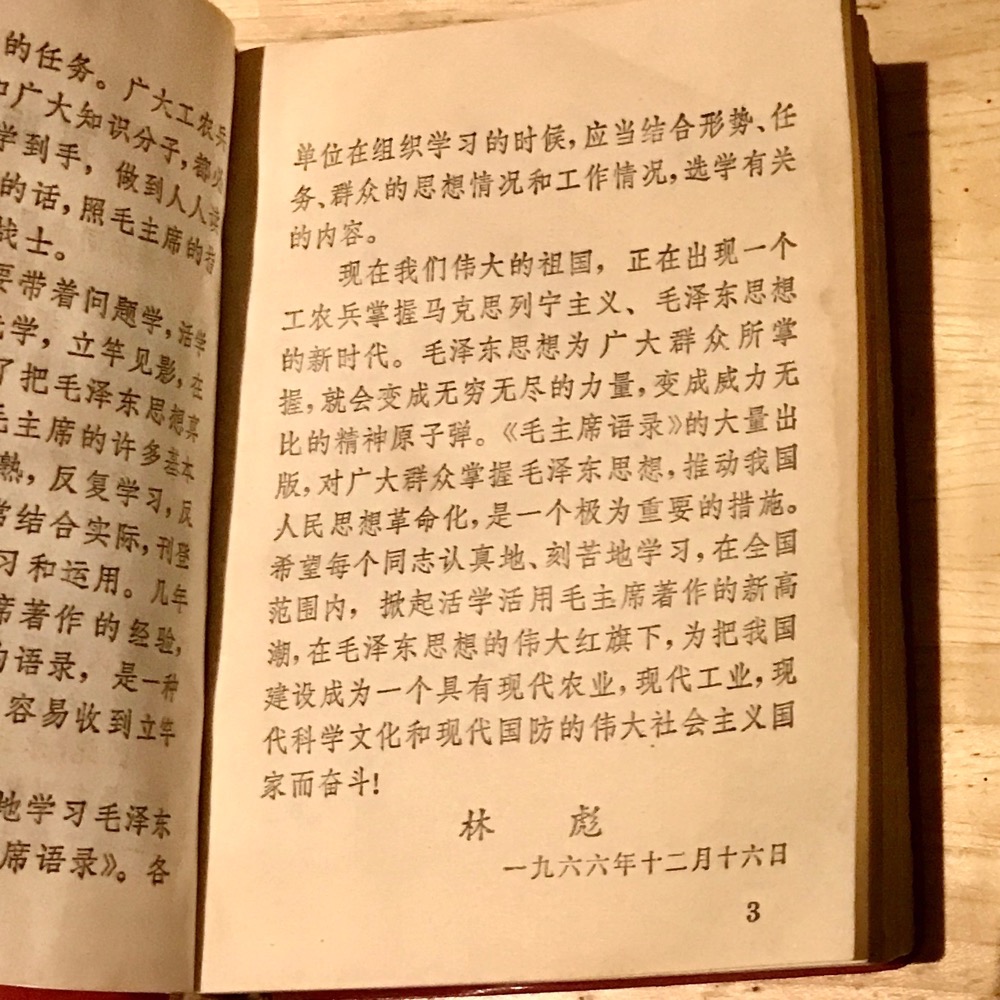 的任务。广大工农兵
广大知识分子，都必
学到手，做到人人读
的话，照毛主席的指
战士。
要带着问题学，活学
学，立竿见影，在
了把毛泽东思想真
毛主席的许多基本
熟，反复学习，反
常结合实际，刊登
习和运用。几年
席著作的经验，
的语录，是一种
容易收到立竿
地学习毛泽东
席语录》。各
单位在组织学习的时候，应当结合形势、任
务、群众的思想情况和工作情况，选学有关
的内容。
现在我们伟大的祖国，正在出现一个
工农兵掌握马克思列宁主义、毛泽东思想
的新时代。毛泽东思想为广大群众所掌
握，就会变成无穷无尽的力量，变成威力无
比的精神原子弹。《毛主席语录》的大量出
版，对广大群众掌握毛泽东思想，推动我国
人民思想革命化，是一个极为重要的措施。
希望每个同志认真地、刻苦地学习，在全国
范围内，掀起活学活用毛主席著作的新高
潮，在毛泽东思想的伟大红旗下，为把我国
建设成为一个具有现代农业，现代工业，现
代科学文化和现代国防的伟大社会主义国
家而奋斗！
林 彪
一九六六年十二月十六日
3